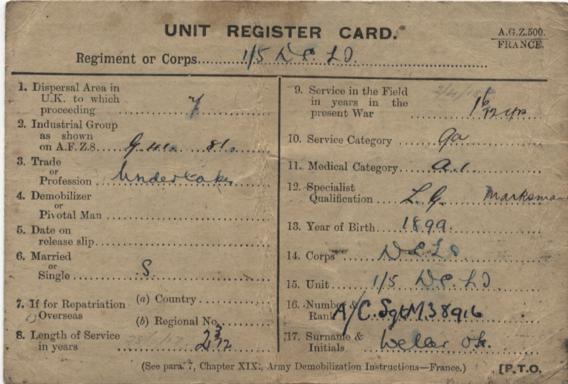 UNIT REGISTER CARD.
A.G.Z.500.
FRANCE.
Regiment or Corps 1/5 D.C.L.I.
1. Dispersal Area in
U.K. to which
proceeding
2. Industrial Group
as shown
on A.F.Z.8.
3. Trade
or
Profession Undertaker
4. Demobilizer
or
Pivotal Man
5. Date on
release slip
6. Married
or
Single S.
7. If for Repatriation
Overseas
(a) Country
(b) Regional No.
8. Length of Service
in years
9. Service in the Field
in years in the
present War
10. Service Category
11. Medical Category A.1.
12. Specialist
Qualification L.G. Marksman
13. Year of Birth 1899.
14. Corps D.C.L.I.
15. Unit 1/5 D.C.L.I.
16. Number &
Rank A/C.Sgt M38916
17. Surname &
Initials
(See para. 7, Chapter XIX., Army Demobilization Instructions—France.)
[P.T.O.